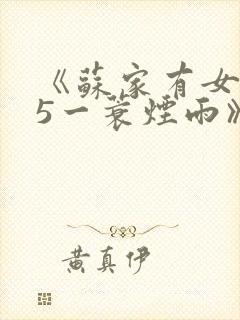 《蘇家有女
5一蓑煙雨》
黄真伊